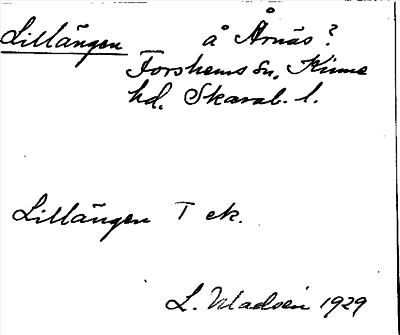 Lillängen å Årnäs?
Forshems sn, Kinne
hd, Skarab. l.
Lillängen T ek.
L. 1929